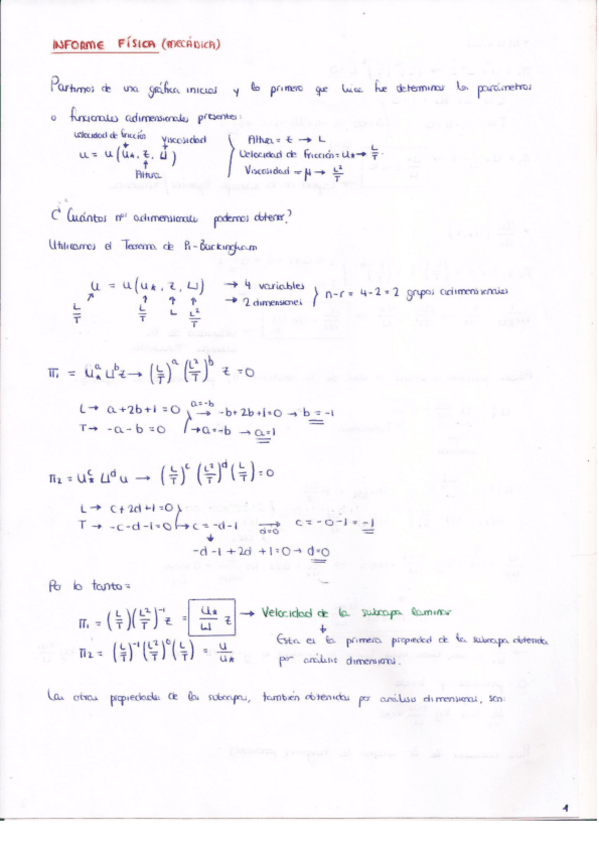 INFORME FÍSICA (MECÁNICA)
Partimos de una gráfica inicial y lo primero que hice fue determinar los parámetros
o funcionales adimensionales presentes:
velocidad de fricción viscosidad
u = u (u*, z, ν)
Altura
Altura = z → L
Velocidad de Fricción = u* → L/T
Viscosidad = μ → L²/T
¿Cuántos nos adimensionales podemos obtener?
Utilizamos el Teorema de Pi-Buckingham
u = u (u*, z, ν) → 4 variables
→ 2 dimensiones } n-r = 4-2 = 2 grupos adimensionales
L/T L/T L L²/T
π₁ = u*^a ν^b z → (L/T)^a (L²/T)^b z = 0
L → a+2b+1=0 a=-b → -b+2b+1=0 → b=-1
T → -a-b=0 → a=-b → a=1
π₂ = u*^c ν^d u → (L/T)^c (L²/T)^d (L/T) = 0
L → c+2d+1=0
T → -c-d-1=0 → c=-d-1 ⟹ d=0 c=-0-1=-1
-d-1+2d+1=0 → d=0
Po lo tanto=
π₁ = (L/T)(L²/T)^-1 z = u*/ν z → Velocidad de la subcapa laminar
π₂ = (L/T)^-1 (L²/T)^0 (L/T) = u/u* Esta es la primera propiedad de la subcapa obtenida
por análisis dimensional.
Las otras propiedades de las subcapas, también obtenidas por análisis dimensional, son:
1